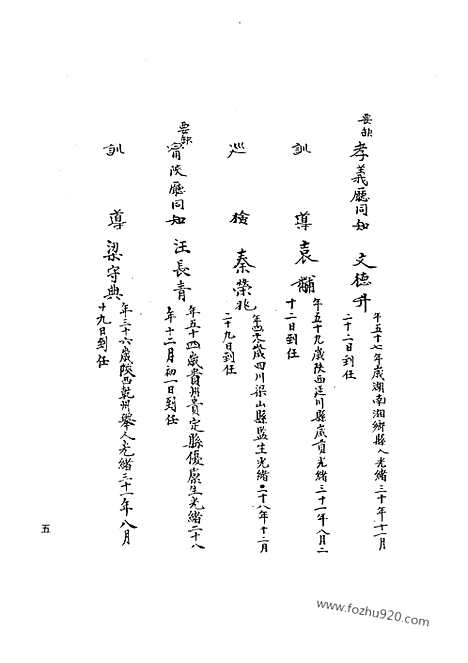 要缺孝義廳同知 文德升 年五十七年歲湖南湘鄉縣人光緒三十年十一月
二十二日到任
訓導袁黼 年五十九歲陝西延川縣歲貢光緒三十一年八月二
十二日到任
巡檢秦榮兆 歲四川梁山縣監生光緒二十八年十二月
二十九日到任
要缺甯陝廳同知汪長青 年五十四歲貴州貴定縣優廩生光緒二十八
年十二月初一日到任
訓導梁守典 年三十六歲陝西乾州舉人光緒三十一年八月
十九日到任
五
www.fozhu920.com